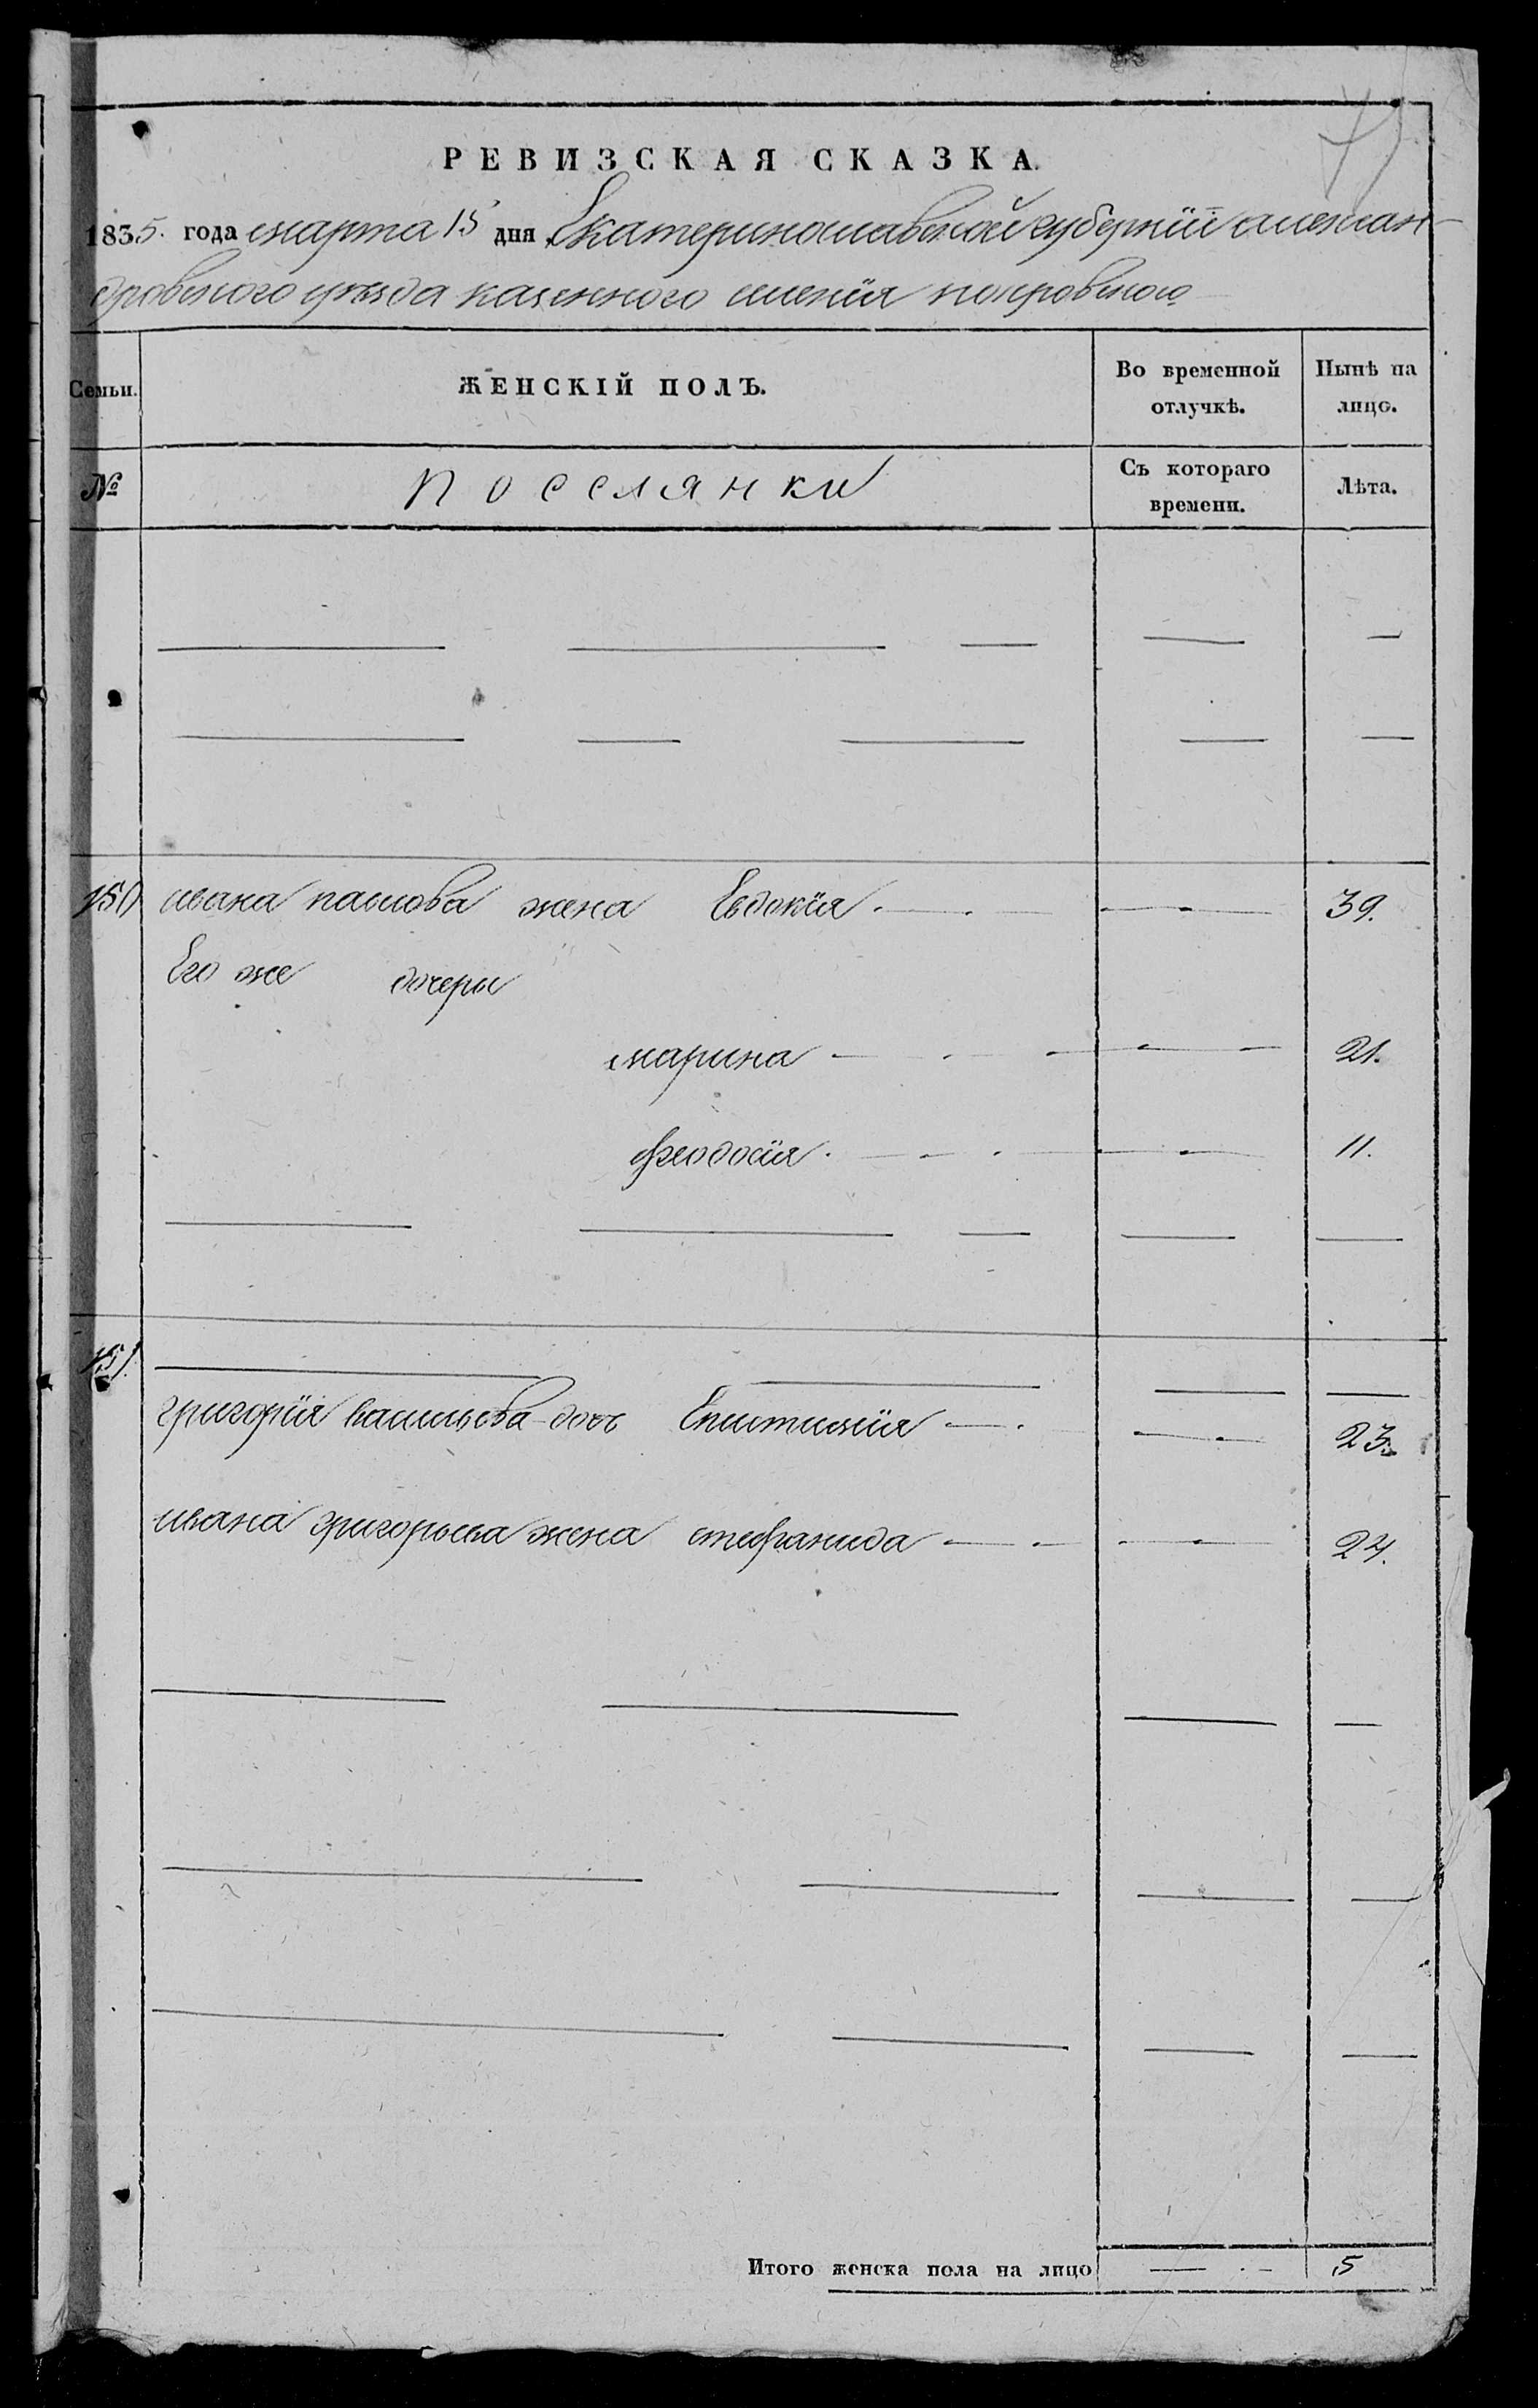 РЕВИЗСКАЯ СКАЗКА.
1835. года марта 15 дня Екатеринославской губернiи алексан-
дровского уезда казенного имения покровского
Семьи. ЖЕНСКІЙ ПОЛЪ. Во временной отлучкѣ. Нынѣ на лицо.
№ Поселянки Съ котораго времени. Лѣта.
150 ивана павлова жена Евдокiя 39.
Его же дочери
марина 21.
феодосiя 11.
151.
григорiя васильева дочь Епистимiя 23.
ивана григорьева жена стефанида 24.
Итого женска пола на лицо 5